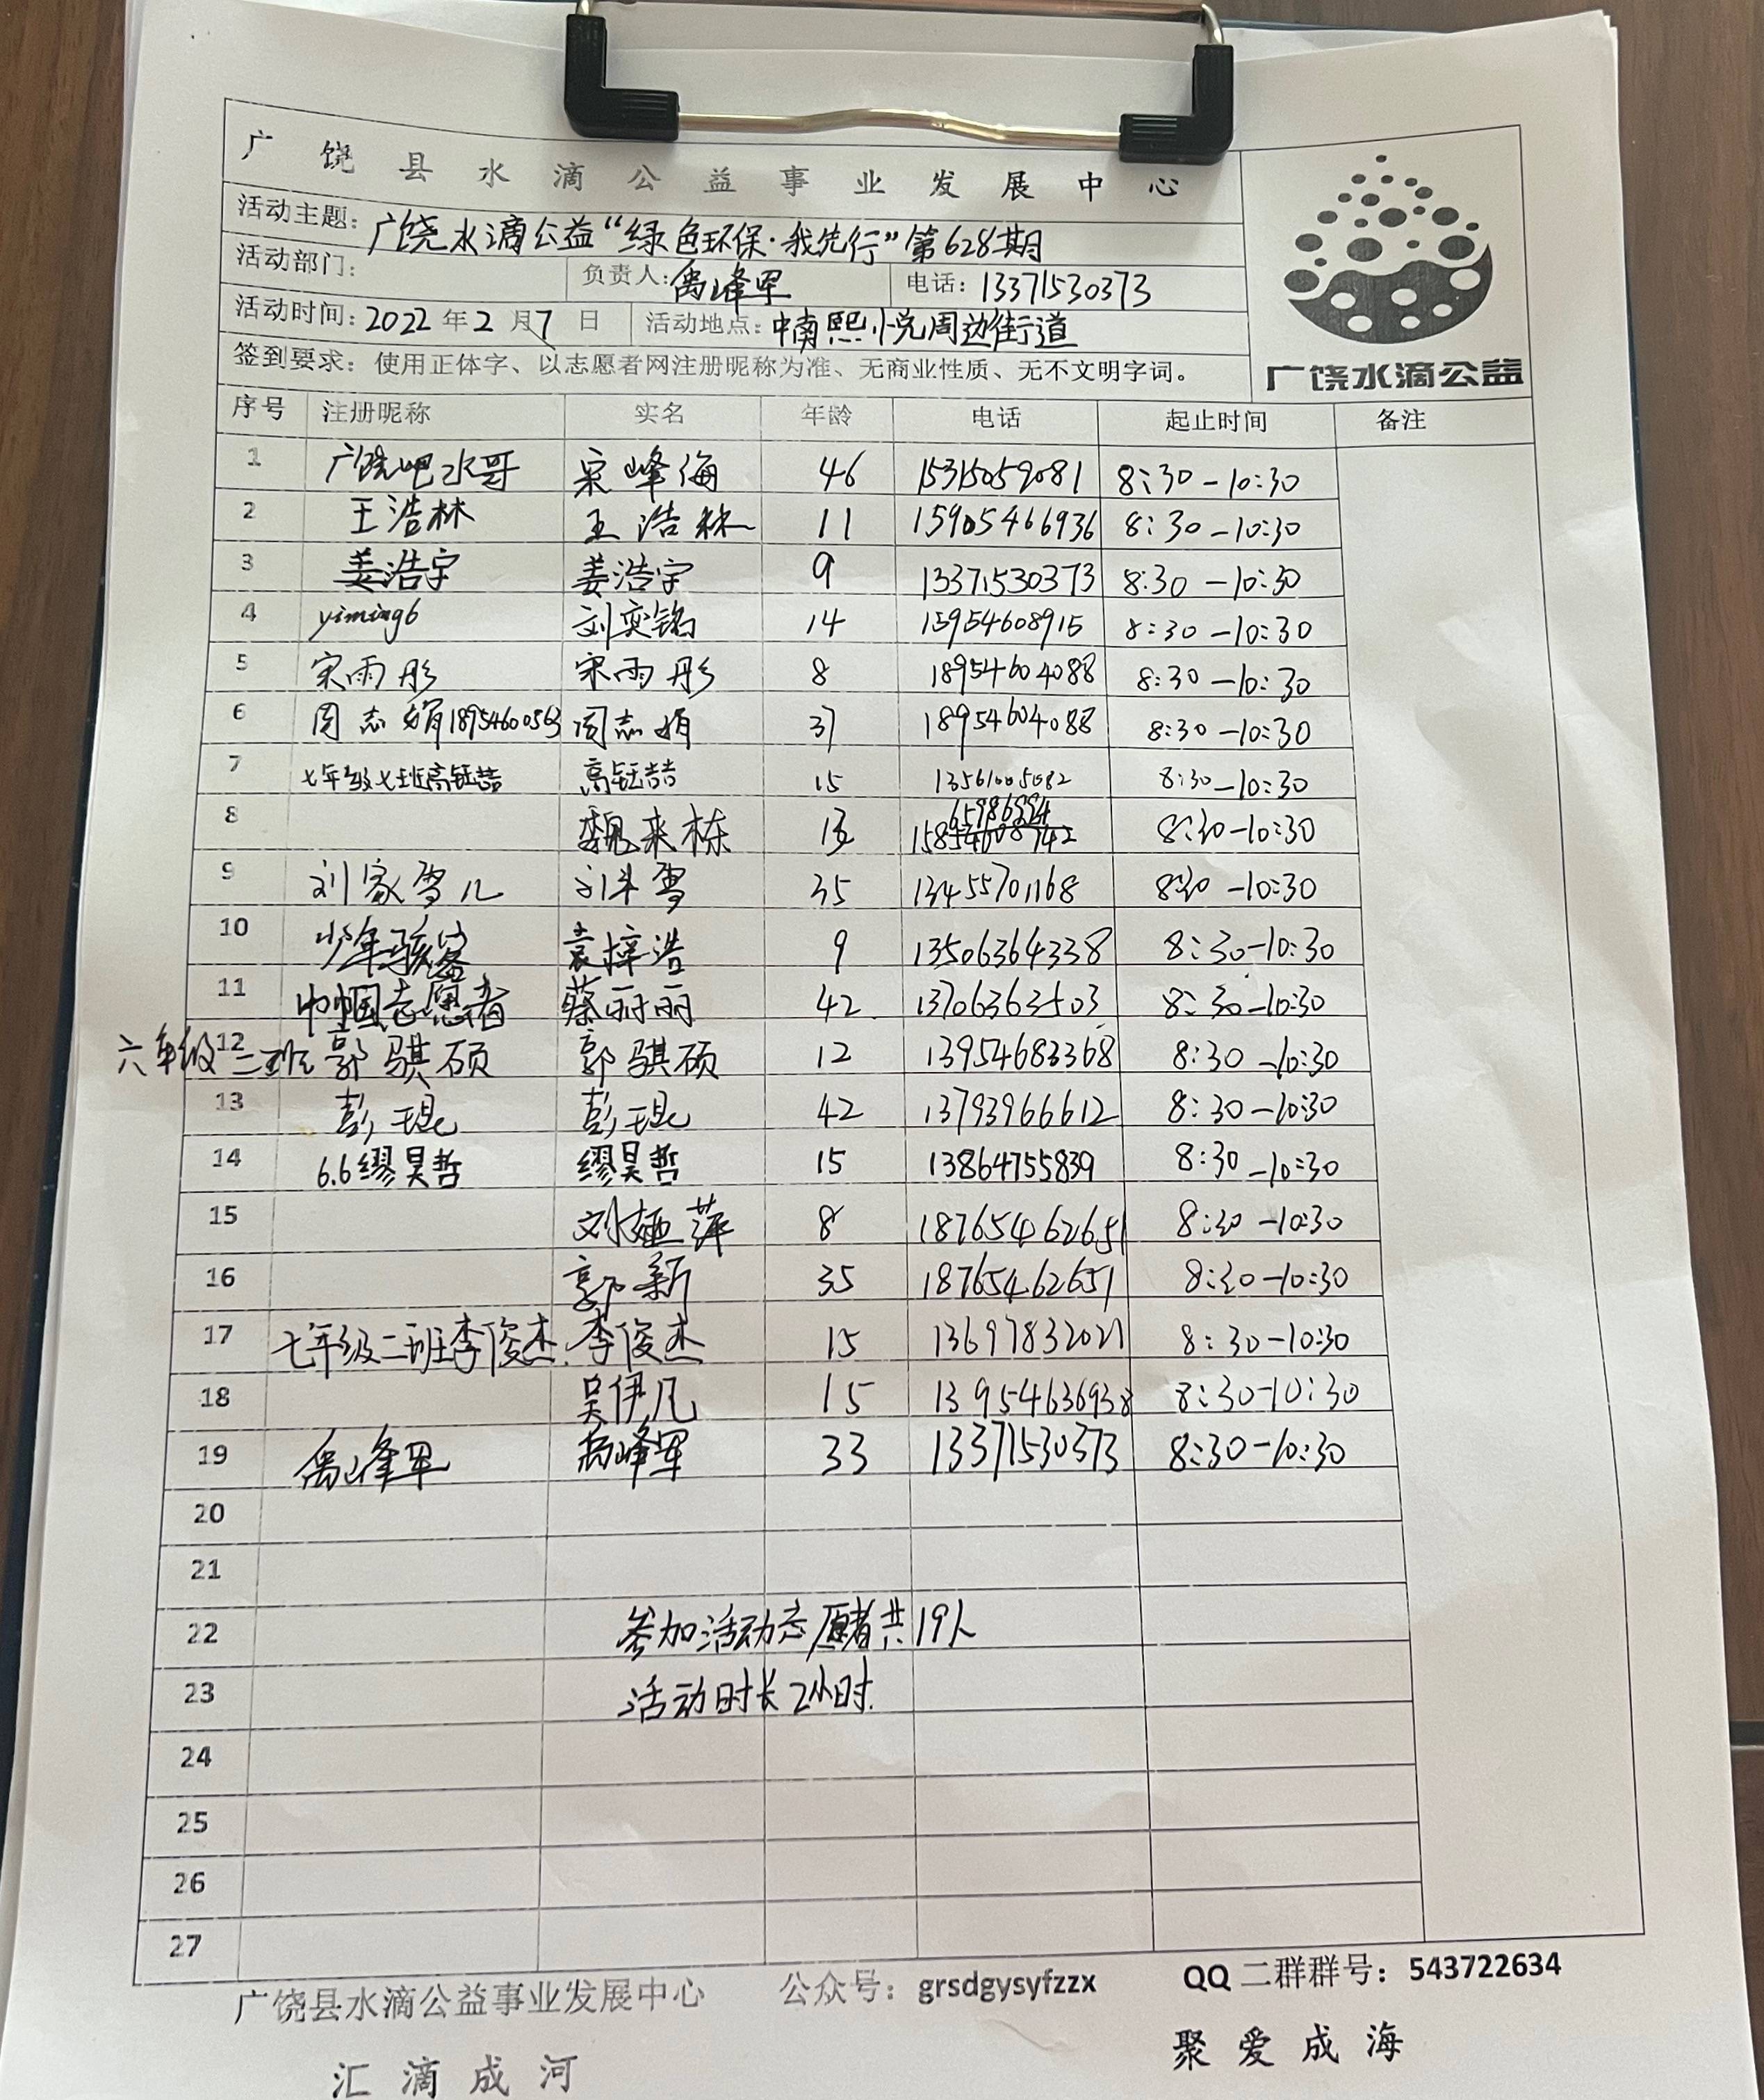 广饶县水滴公益事业发展中心
活动主题：广饶水滴公益“绿色环保·我先行”第628期
活动部门： 负责人：禹峰军 电话：13371530373
活动时间：2022年2月7日 活动地点：中南熙悦周边街道
签到要求：使用正体字、以志愿者网注册昵称为准、无商业性质、无不文明字词。
广饶水滴公益
序号 注册昵称 实名 年龄 电话 起止时间 备注
1 广饶吧水哥 宋峰海 46 15315059081 8:30-10:30
2 王浩林 王浩林 11 15905466936 8:30-10:30
3 姜浩宇 姜浩宇 9 13371530373 8:30-10:30
4 yiming6 刘奕铭 14 15954608915 8:30-10:30
5 宋雨彤 宋雨彤 8 18954604088 8:30-10:30
6 周志娟18954600563 周志娟 37 18954604088 8:30-10:30
7 七年级七班高钰喆 高钰喆 15 13561005082 8:30-10:30
8 魏来栋 8:30-10:30
9 刘家雪儿 雪 35 13455701168 8:30-10:30
10 少年骇客 袁梓浩 9 13506364338 8:30-10:30
11 巾帼志愿者 蔡丽丽 42 13706363503 8:30-10:30
12 六年级二班郭骐硕 郭骐硕 12 13954683368 8:30-10:30
13 彭琨 彭琨 42 13793966612 8:30-10:30
14 6.6缪昊哲 缪昊哲 15 13864755839 8:30-10:30
15 刘娅萍 8 18765462651 8:30-10:30
16 郭新 35 18765462651 8:30-10:30
17 七年级二班李俊杰. 李俊杰 15 13697832021 8:30-10:30
18 吴伊凡 15 13954636938 8:30-10:30
19 禹峰军 禹峰军 33 13371530373 8:30-10:30
20
21
22 参加活动志愿者共19人
23 活动时长2小时.
24
25
26
27
广饶县水滴公益事业发展中心 公众号：grsdgysyfzzx QQ二群群号：543722634
汇滴成河 聚爱成海